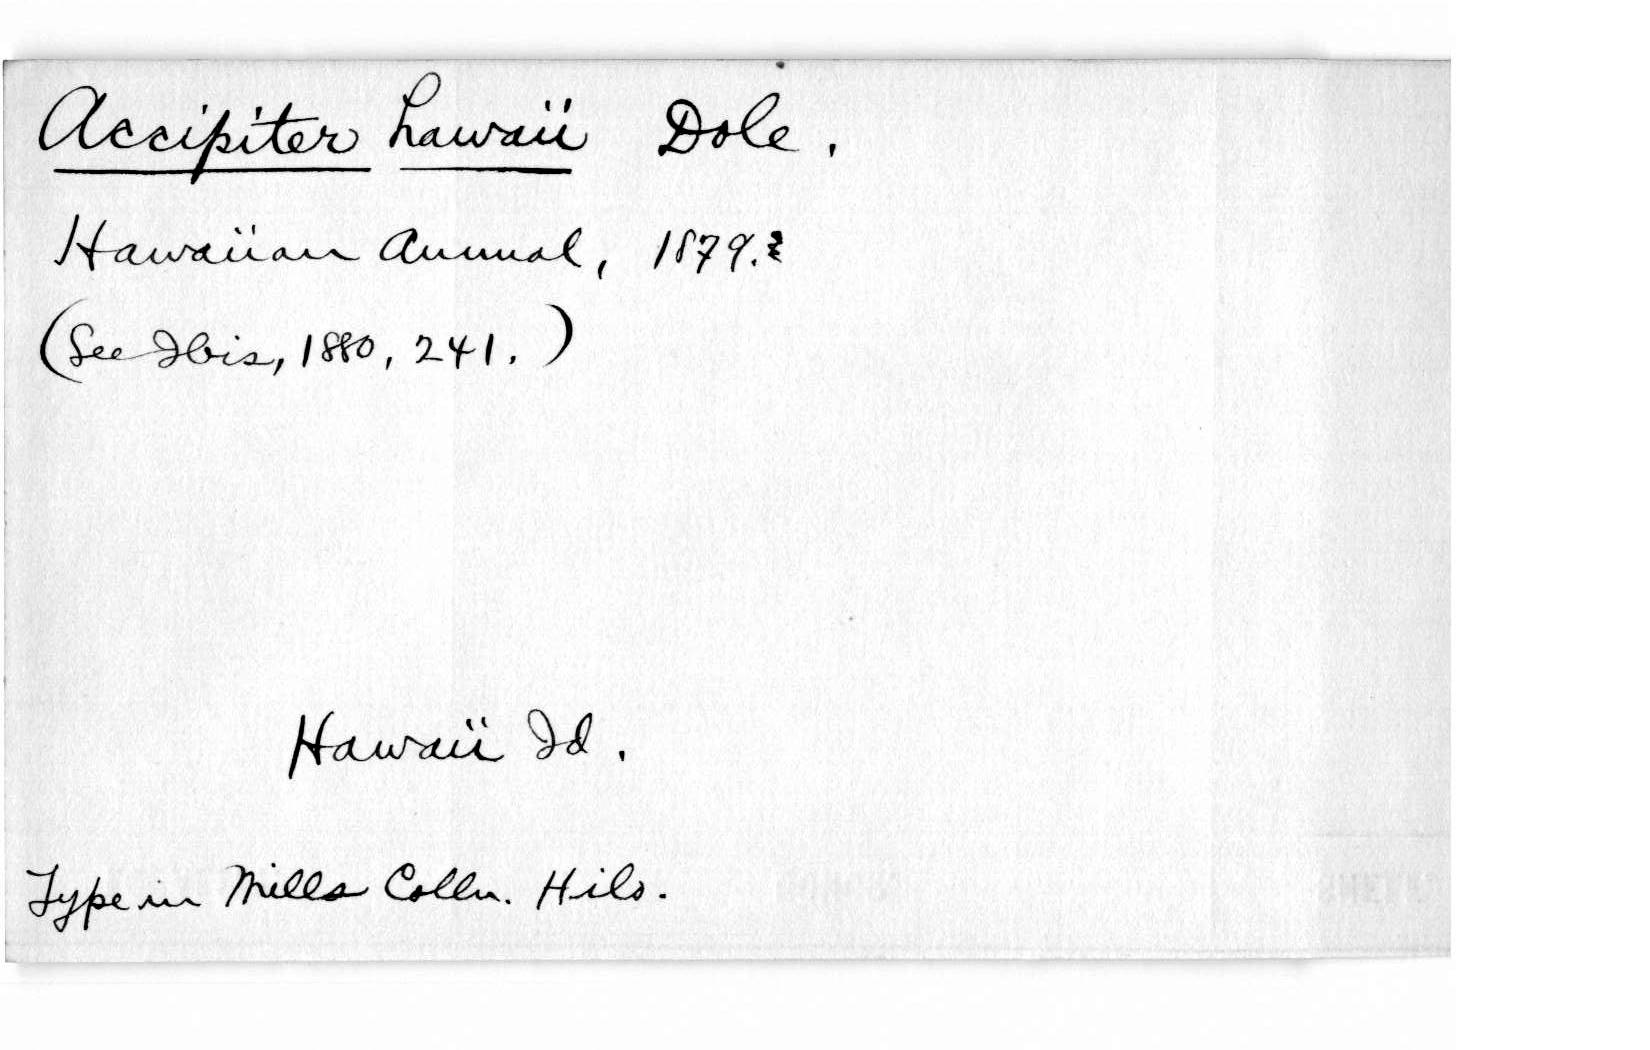 Accipiter hawaii Dole.
Hawaiian Annual, 1879.
(See Ibis, 1880, 241.)
Hawaii Id.
Type in Mills Colln. Hilo.